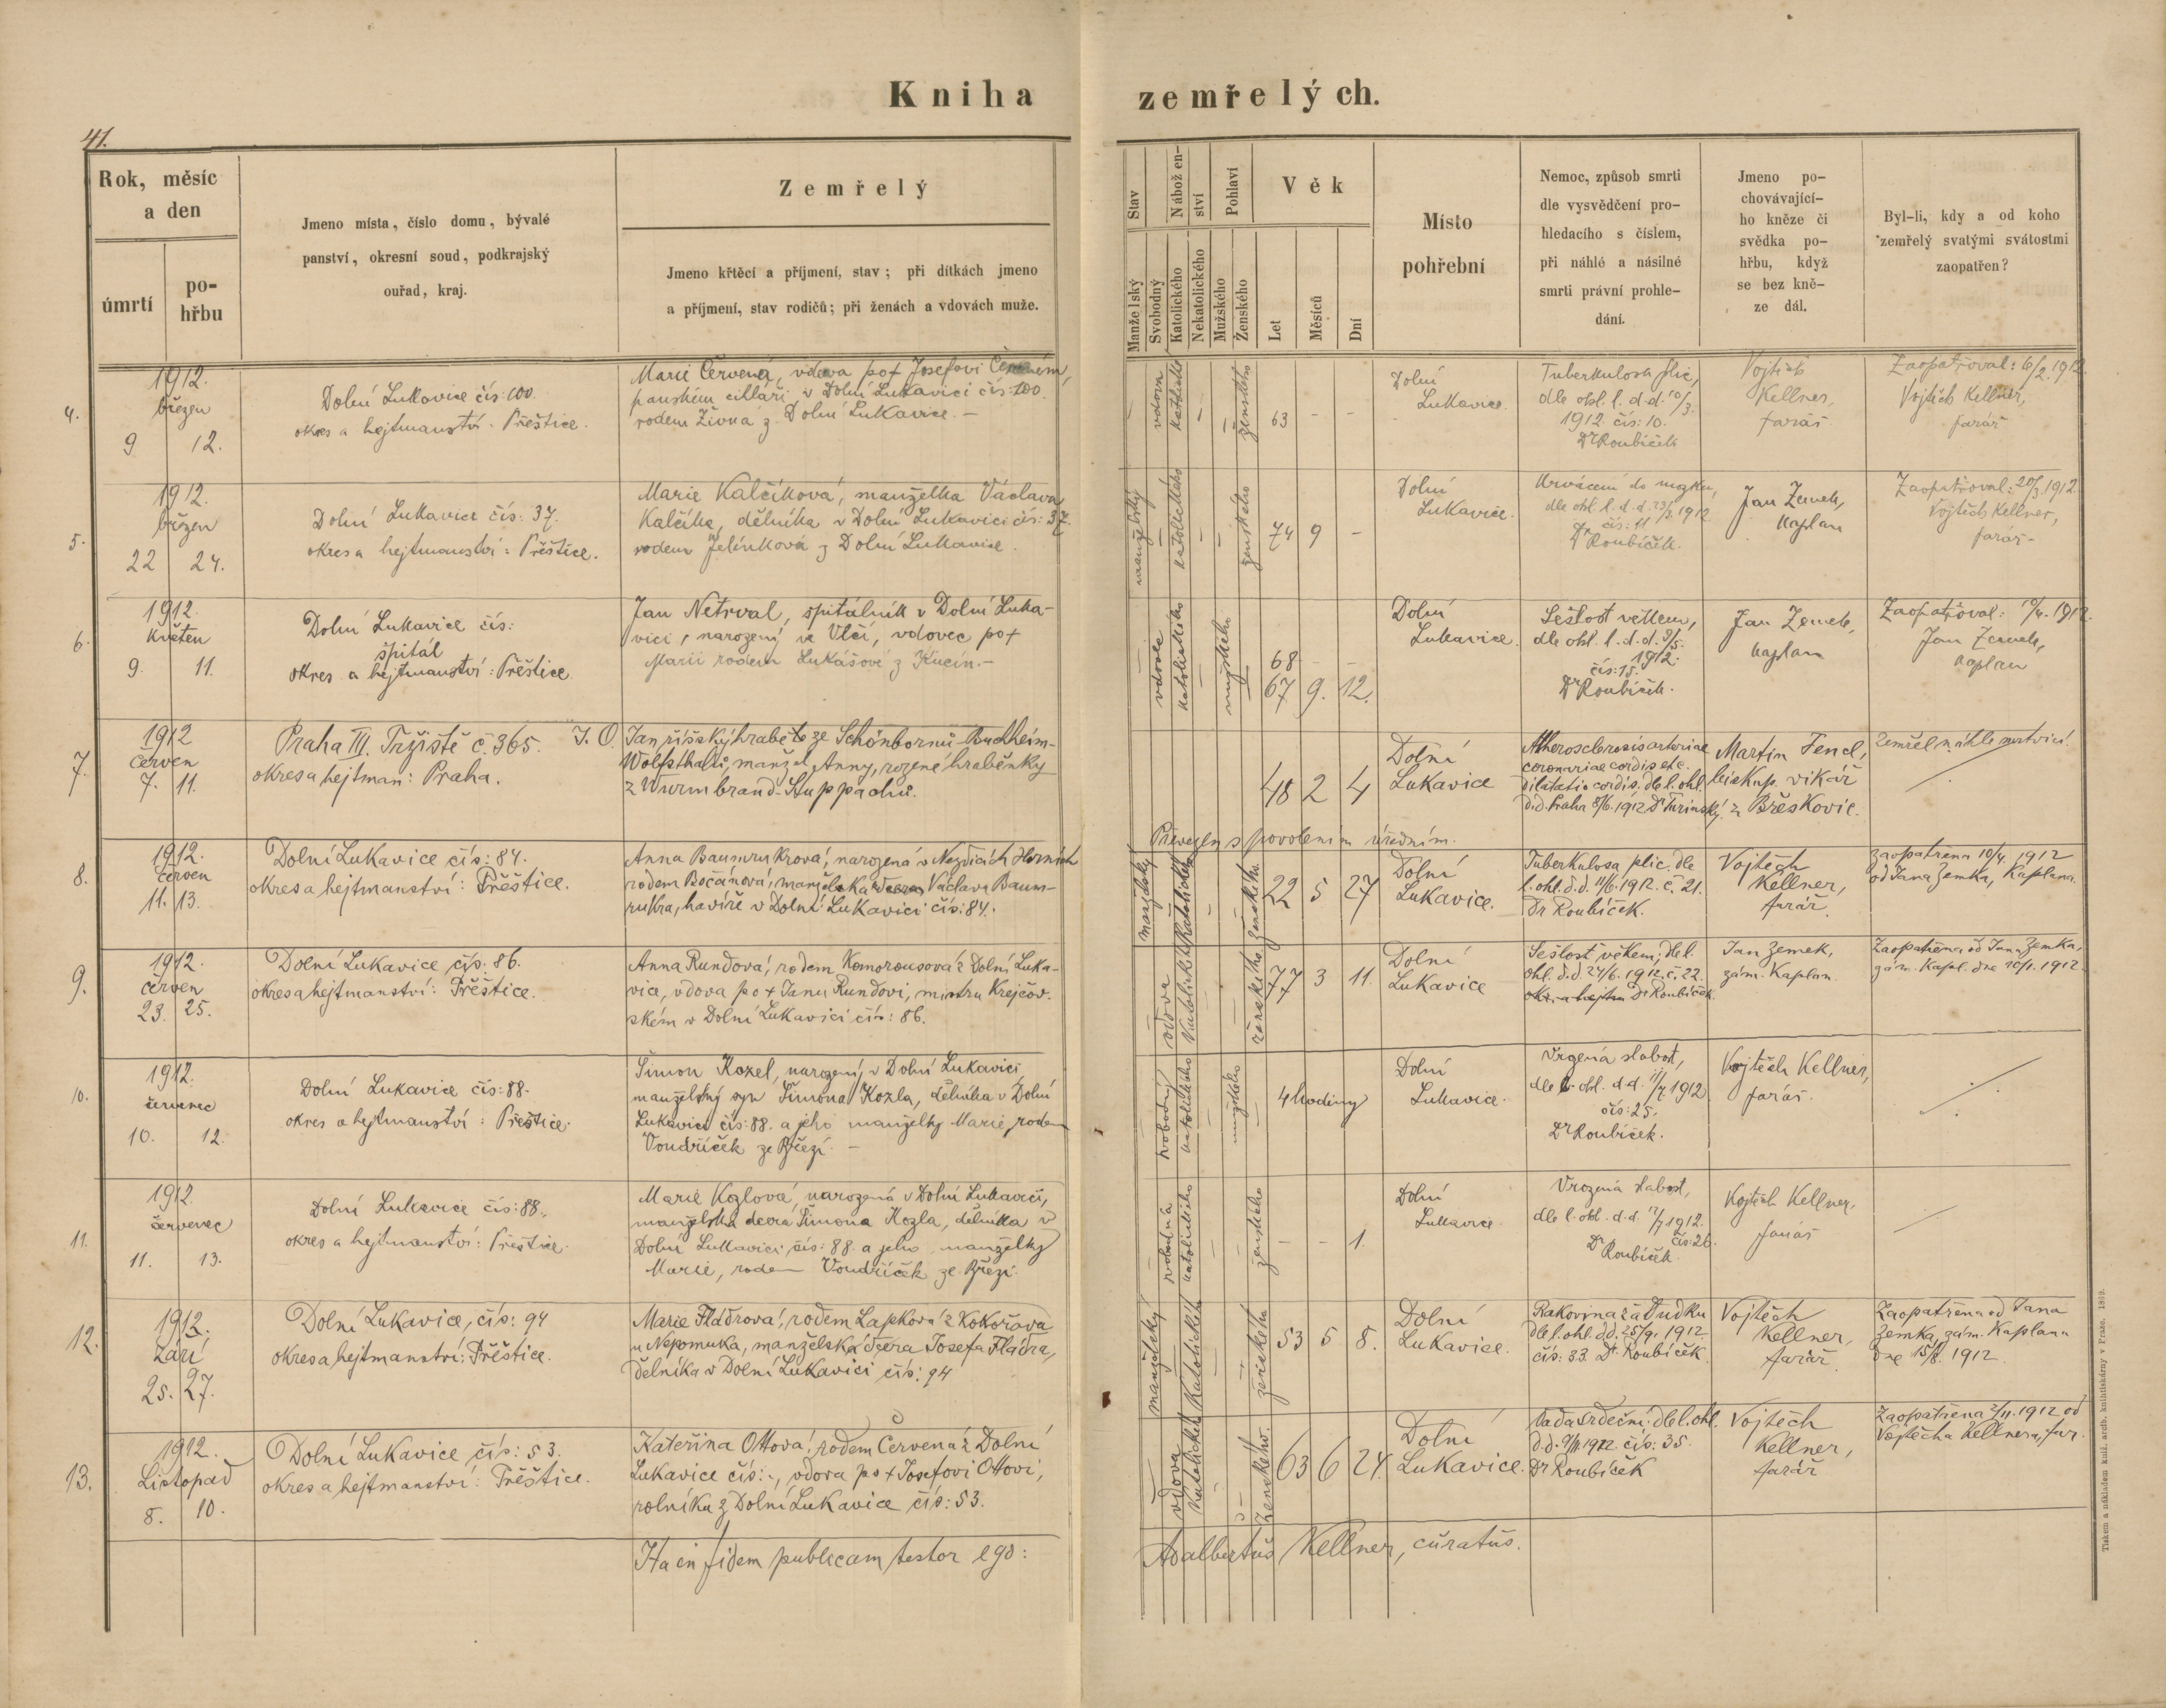 Kniha zemřelých.
41.
Rok, měsíc
a den
úmrtí
po-
hřbu
Jmeno místa, číslo domu, bývalé
panství, okresní soud, podkrajský
ouřad, kraj.
Zemřelý
Jmeno křtěcí a příjmení, stav; při dítkách jmeno
a příjmení, stav rodičů; při ženách a vdovách muže.
Stav
Manželský
Svobodný
Nábožen-
ství
Katolického
Nekatolického
Pohlaví
Mužského
Ženského
Věk
Let
Měsíců
Dní
Místo
pohřební
Nemoc, způsob smrti
dle vysvědčení pro-
hledacího s číslem,
při náhlé a násilné
smrti právní prohle-
dání.
Jmeno po-
chovávající-
ho kněze či
svědka po-
hřbu, když
se bez kně-
ze dál.
Byl-li, kdy a od koho
zemřelý svatými svátostmi
zaopatřen?
4.
1912.
březen
9 12.
Dolní Lukavice čís: 100.
okres a hejtmanství: Přeštice.
Marie Červená, vdova po † Josefovi Červeném,
panském cihláři v Dolní Lukavici čís: 100.
rodem Živná z Dolní Lukavice. –
– vdova katolického – – ženského
63 – –
Dolní
Lukavice.
Tuberkulosa plic,
dle ohl. l. d.d. 10/3.
1912 čís: 10.
Dr Roubíček
Vojtěch
Kellner,
farář.
Zaopatřoval: 6/2.1912
Vojtěch Kellner,
farář
5.
1912.
březen
22 24.
Dolní Lukavice čís: 37.
okres a hejtmanství: Přeštice.
Marie Kalčíková, manželka Václava
Kalčíka, dělníka v Dolní Lukavici čís: 37.
rodem Jelínková z Dolní Lukavice.
manželský – katolického – – ženského
74 9 –
Dolní
Lukavice.
Krvácení do mozku,
dle ohl. l. d.d. 23/3 1912
čís: 11
Dr Roubíček.
Jan Zemek,
kaplan
Zaopatřoval: 20/3.1912.
Vojtěch Kellner,
farář –
6.
1912.
květen
9. 11.
Dolní Lukavice čís:
špitál
okres a hejtmanství: Přeštice.
Jan Netrval, špitálník v Dolní Luka-
vici, narozený ve Vlčí, vdovec po †
Marii rodem Lukášové z Kucín. –
– vdovec katolického – mužského –
68 – –
67 9. 12.
Dolní
Lukavice.
Sešlost věkem,
dle ohl. l. d.d. 9/5.
1912.
čís: 15.
Dr Roubíček.
Jan Zemek,
kaplan
Jan Zemek,
kaplan
7.
1912
červen
7. 11.
Praha III. Tržiště č. 365.
okres a hejtman: Praha.
J. O. Jan říšský hrabě ze Schönbornů-Buchheim-
Wolfsthalů, manžel Anny, rozené hraběnky
z Wurmbrand-Stuppachů.
48 2 4
Dolní
Lukavice
Atherosclerosis arteriae
coronariae cordis etc.
dilatatio cordis. dle l. ohl.
d.d. Praha 8/6.1912 Dr Turinský
Martin Fencl,
biskup. vikář
z Břeskovic.
Zemřel náhle mrtvicí.
Převezen s povolením úředním.
8.
1912.
červen
11. 13.
Dolní Lukavice čís: 84.
okres a hejtmanství: Přeštice.
Anna Baumrukrová, narozená v Nezdicích Horních
rodem Bočanová, manželka Václava Baum-
rukra, havíře v Dolní Lukavici čís: 84.
manželský – katolického – – ženského
22 5 27
Dolní
Lukavice.
Tuberkulosa plic. dle
l. ohl. d.d. 11/6.1912. č. 21.
Dr Roubíček.
Vojtěch
Kellner,
farář.
Zaopatřena 10/4. 1912
od Jana Zemka, Kaplana.
9.
1912.
červen
23. 25.
Dolní Lukavice čís: 86.
okres a hejtmanství: Přeštice.
Anna Rundová, rodem Komorousová z Dolní Luka-
vice, vdova po † Janu Rundovi, mistru krejčov-
ském v Dolní Lukavici čís: 86.
– vdova katolického – – ženského
77 3 11.
Dolní
Lukavice
Sešlost věkem; dle l.
ohl. d.d 24/6. 1912. č. 22.
Dr Roubíček.
Jan Zemek,
zám. Kaplan.
Zaopatřena od Jana Zemka,
10.
1912.
červenec
10. 12.
Dolní Lukavice čís: 88.
okres a hejtmanství: Přeštice.
Šimon Kozel, narozený v Dolní Lukavici
manželský syn Šimona Kozla, dělníka v Dolní
Lukavici čís: 88. a jeho manželky Marie, rodem
Voudříček ze Březí. –
– svobodný katolického – mužského –
4 hodiny
Dolní
Lukavice.
Vrozená slabost,
dle l. ohl. d.d. 11/7 1912
čís: 25.
Dr Roubíček.
Vojtěch Kellner,
farář.
11.
1912.
červenec
11. 13.
Dolní Lukavice čís: 88.
okres a hejtmanství: Přeštice.
Marie Kozlová, narozená v Dolní Lukavici,
manželská dcera Šimona Kozla, dělníka v
Dolní Lukavici čís: 88. a jeho manželky
Marie, rodem Voudříček ze Březí.
– svobodná katolického – – ženského
– – 1.
Dolní
Lukavice.
Vrozená slabost,
dle l. ohl. d.d. 12/7 1912.
čís: 26.
Dr Roubíček.
Vojtěch Kellner,
farář
12.
1912.
Září
25. 27.
Dolní Lukavice, čís: 94
okres a hejtmanství: Přeštice.
Marie Fládrová, rodem Lapková z Kokořova
u Nepomuka, manželská dcera Josefa Fládra,
dělníka v Dolní Lukavici čís: 94
manželský – katolického – – ženského
53 5 8.
Dolní
Lukavice.
Rakovina žaludku
dle l. ohl. d.d. 25/9. 1912.
čís: 33. Dr. Roubíček.
Vojtěch
Kellner,
farář.
Zaopatřena od Jana
Zemka, zám. Kaplana
dne 15/8. 1912
13.
1912.
Listopad
8. 10.
Dolní Lukavice čís: 53.
okres a hejtmanství: Přeštice.
Kateřina Ottová, rodem Červená z Dolní
Lukavice čís: –, vdova po † Josefovi Ottovi,
rolníku z Dolní Lukavice čís: 53.
– vdova katolického – – ženského.
63 6 24.
Dolní
Lukavice.
Vada srdeční: dle l. ohl.
d.d. 9/11.1912. čís: 35.
Dr Roubíček
Vojtěch
Kellner,
farář
Zaopatřena 2/11.1912 od
Vojtěcha Kellnera, far.
Ita in fidem publicam testor ego:
Adalbertus Kellner, curatus.
Tiskem a nákladem kníž. arcib. knihtiskárny v Praze. 1869.